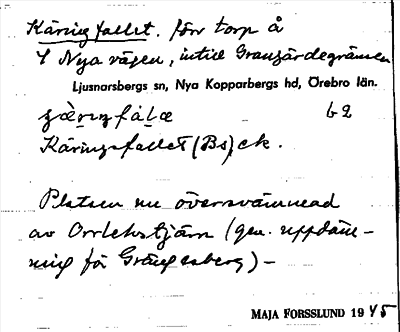 Käringfallet. förr torp å
Y Nya vägen, intill Grangärdegränsen
Ljusnarsbergs sn, Nya Kopparbergs hd, Örebro län.
b 2
Käringsfallet (Bs) ek.
Platsen nu översvämmad
av Orrlekstjärn (gen. uppdäm-
ning för Grängesberg) -
MAJA FORSSLUND 19 45